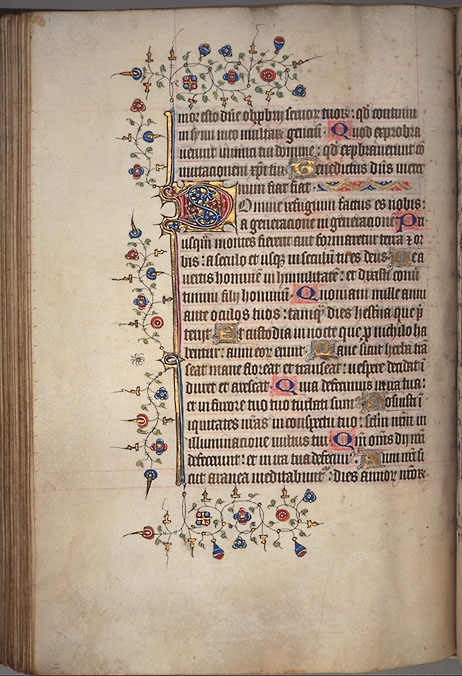 mor esto dñe obprbrij seruor tuor: qd continui
in sinu meo multar gentiū. Quod exprobra
uerunt inimici tui domine: qd exprobrauerunt cō
mutacionem xp̄i tui. Benedictus dn̄s in eter
num fiat fiat
Domine refugium factus es nobis:
a generacione in generacionē. Pri
usqm̄ montes fierent aut formaretur terra ⁊ or
bis: a seculo et usqꝫ in seculū tu es deus. Ne a
uertas hominē in humilitatē: et dixisti conū
timini filij hominū. Quoniam mille anni
ante oculos tuos: tamqm̄ dies hesterna que p̄
terijt. Et custodia in nocte que ꝓ nichilo ha
bentur: anni eorꝫ erunt. Mane sicut herba trā
seat mane floreat et transeat: uespere decidat ī
duret et arescat. Quia defecimus in ira tua:
et in furore tuo turbati sumꝰ. Posuisti ī
iquitates nr̄as in conspectu tuo: seclm̄ nr̄m in
illuminacione uultus tui. Qm̄ om̄s dies nr̄i
defecerunt: et in ira tua defecimꝰ. Anni nr̄i si
cut aranea meditabunt̉: dies annorꝫ nr̄orꝫ